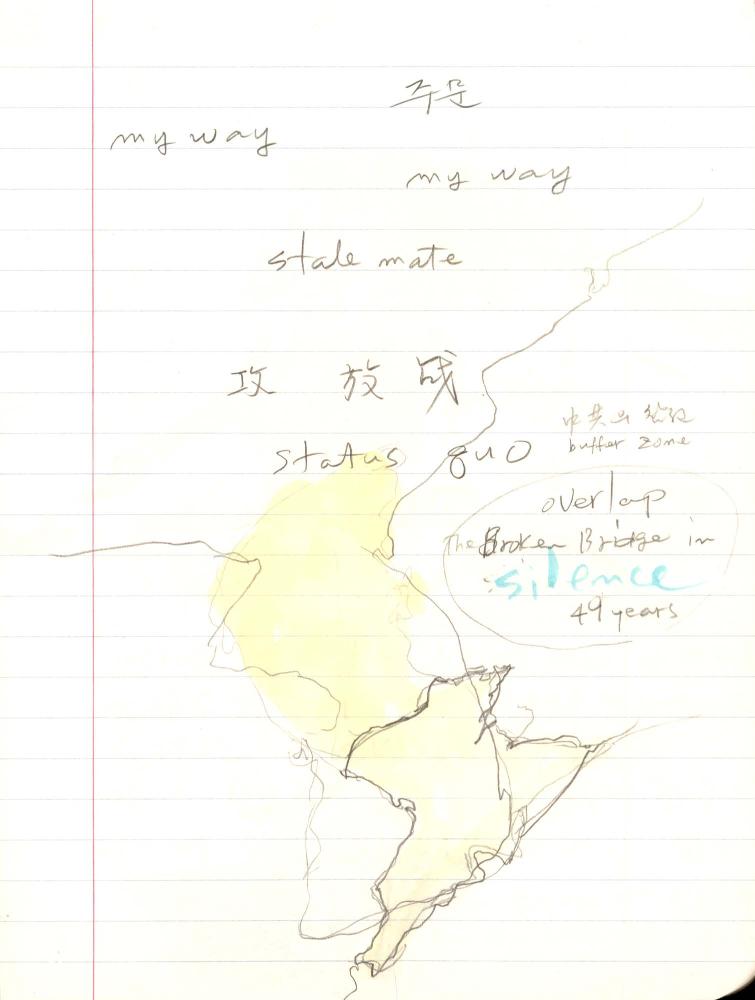 주문
my way
my way
stale mate
攻 放
status quo
中共의
buffer zone
overlap
The Broken Bridge in
silence
49 years